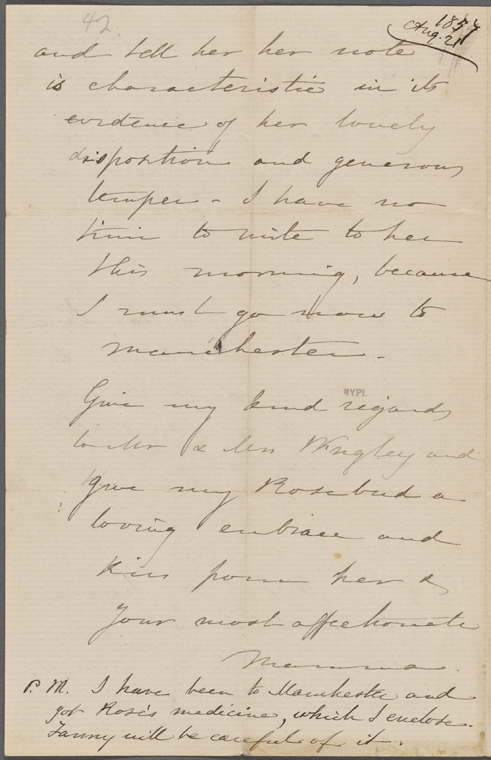 42.
1857
Aug. 21
and tell her her note
is characteristic in its
evidence of her lovely
disposition and generous
temper - I have no
time to write to her
this morning, because
I must go now to
Manchester.
Give my kind regards
to Mr & Mrs Wrigley and
give my Rosebud a
loving embrace and
kiss from her &
Your most affectionate
Mamma.
P. M. I have been to Manchester and
got Rose's medicine, which I enclose.
Fanny will be careful of it.
NYPL